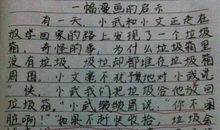 一幅漫画的启示
有一天，小武和小文正走在
放学回家的路上发现了一个垃圾
箱，奇怪的事，为什么垃圾箱里
没有垃圾，圾垃却都堆在垃圾箱
周围，小文毫不犹豫地对小武说
“快，我们把垃圾给他放回
垃圾箱，”小武频频周说：“你不嫌
脏啊！”如果不赶快收拾，垃圾会